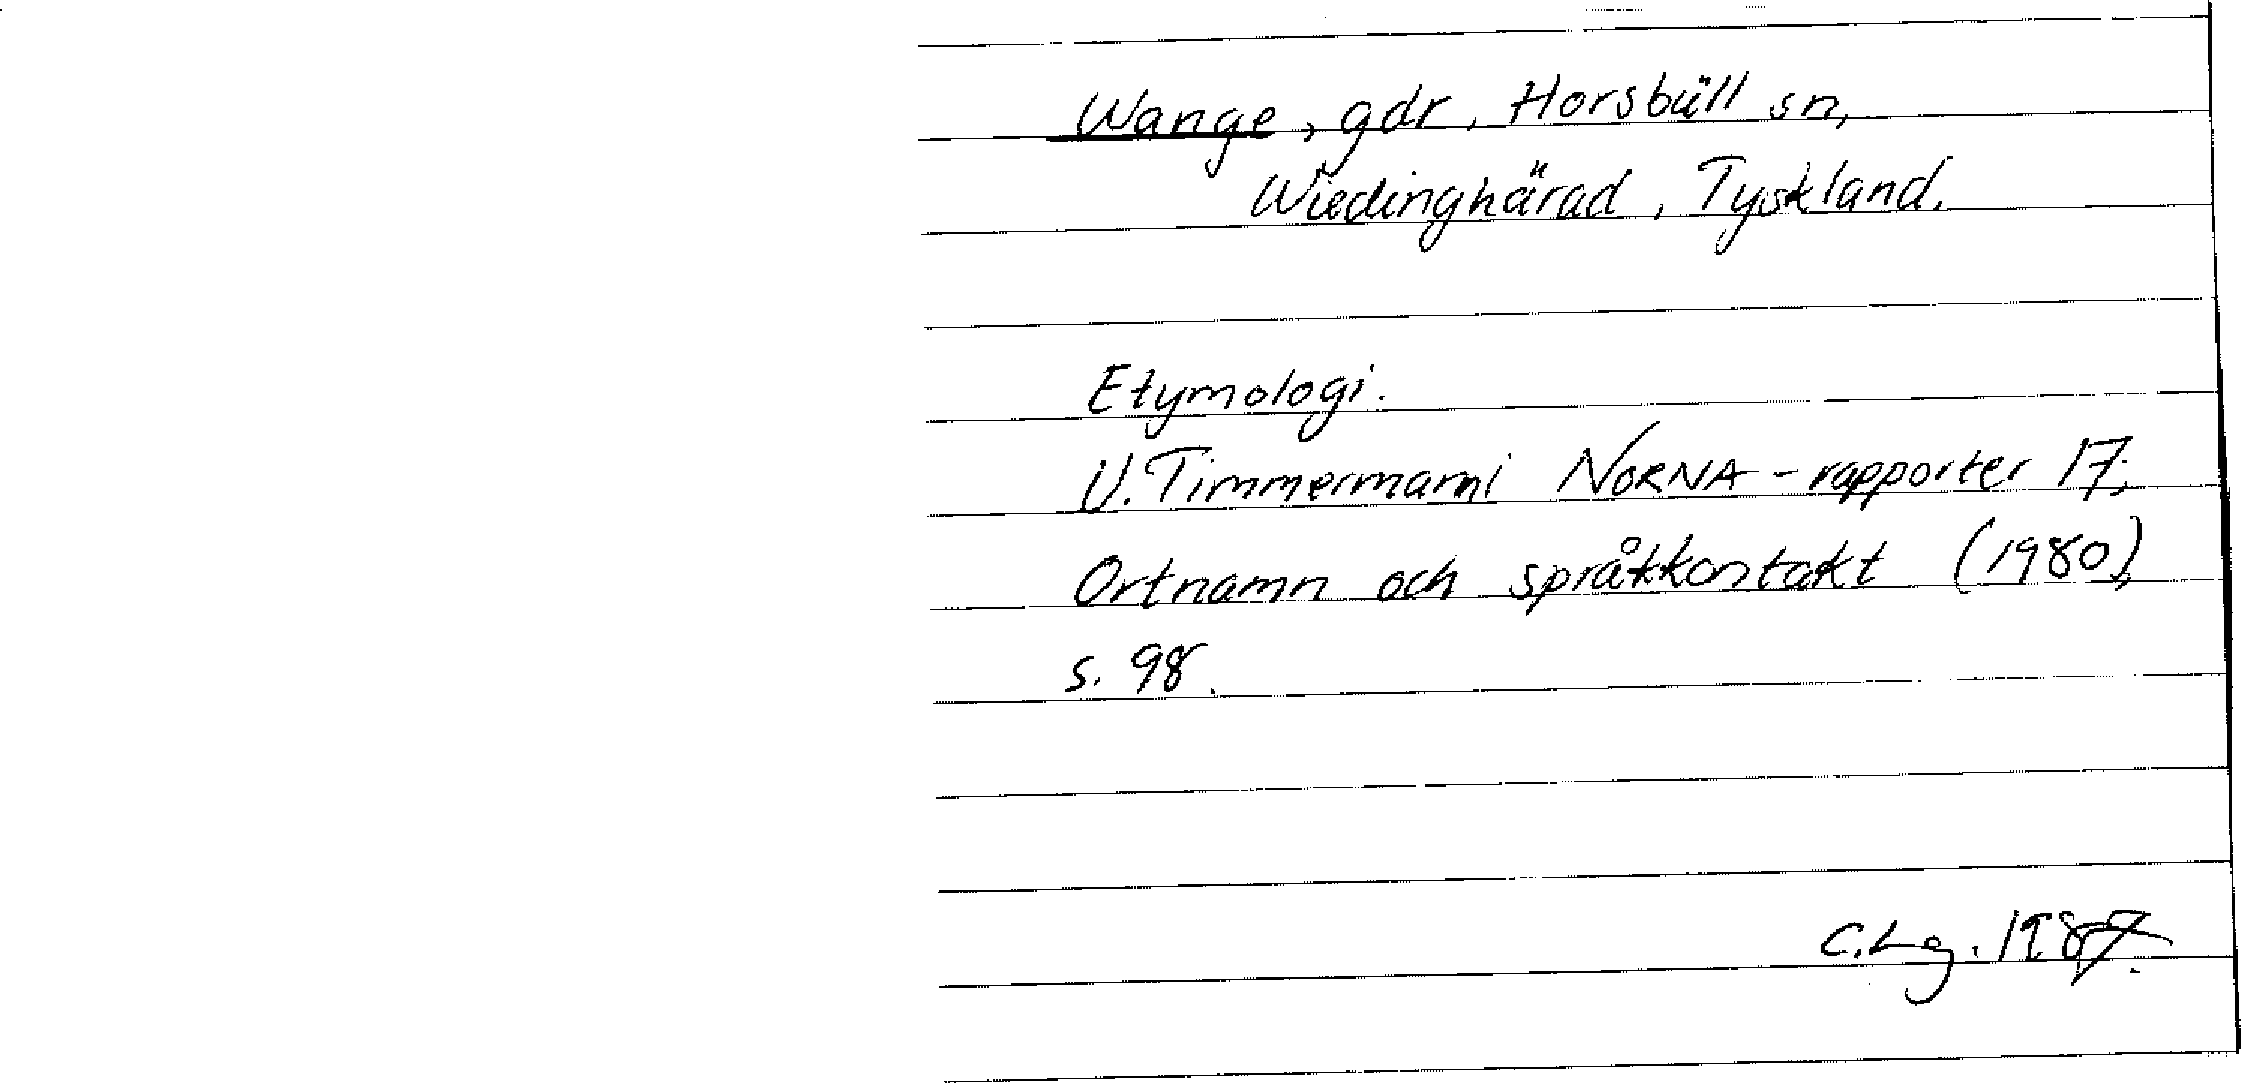 Wange, gdr, Horsbüll sn,
Wiedinghärad, Tyskland.
Etymologi.
U. Timmermann i NORNA-rapporter 17;
Ortnamn och språkkontakt (1980),
s. 98.
C. Lg. 1987.